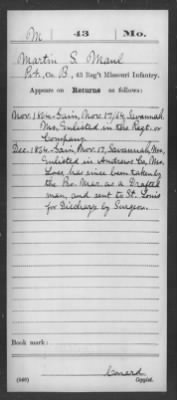 M | 43 | Mo.
Martin S. Maul
Pvt., Co. B, 43 Reg't Missouri Infantry.
Appears on Returns as follows:
Nov. 1864. Gain, Nov. 17, 64, Savannah
Mo, Enlisted in the Regt. or
Company.
Dec. 1864. Gain, Nov. 17, Savannah Mo,
Enlisted in Andrew Co, Mo
Loss, has since been taken
by the Pro. Mar. as a Drafted
man, and sent to St. Louis
for Discharge by Surgeon.
Book mark:
(546)
Conard
Copyist.